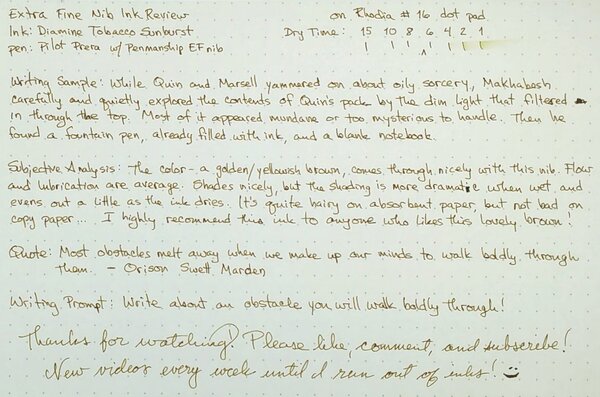 Extra Fine Nib Ink Review on Rhodia #16 dot pad
Ink: Diamine Tobacco Sunburst Dry Time: 15 10 8 6 4 2 1
pen: Pilot Prera w/ Penmanship EF nib
Writing Sample: While Quin and Marsell yammered on about oily sorcery, Makhabesh
carefully and quietly explored the contents of Quin's pack by the dim light that filtered
in through the top. Most of it appeared mundane or too mysterious to handle. Then he
found a fountain pen, already filled with ink, and a blank notebook.
Subjective Analysis: The color - a golden/yellowish brown, comes through nicely with this nib. Flow
and lubrication are average. Shades nicely, but the shading is more dramatic when wet, and
evens out a little as the ink dries. It's quite hairy on absorbent paper, but not bad on
copy paper... I highly recommend this ink to anyone who likes this lovely brown!
Quote: Most obstacles melt away when we make up our minds to walk boldly through
them. - Orison Swett Marden
Writing Prompt: Write about an obstacle you will walk boldly through!
Thanks for watching. Please like, comment, and subscribe!
New videos every week until I run out of inks!